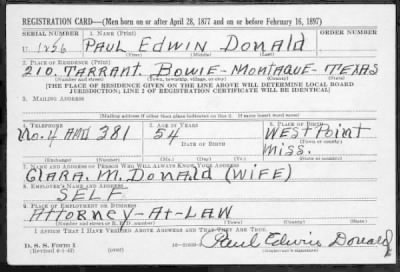 REGISTRATION CARD—(Men born on or after April 28, 1877 and on or before February 16, 1897)
SERIAL NUMBER 1. NAME (Print) ORDER NUMBER
U. 1256 PAUL EDWIN DONALD
(First) (Middle) (Last)
2. PLACE OF RESIDENCE (Print)
210. TARRANT BOWIE-MONTAGUE-TEXAS
(Number and street) (Town, township, village, or city) (County) (State)
[THE PLACE OF RESIDENCE GIVEN ON THE LINE ABOVE WILL DETERMINE LOCAL BOARD
JURISDICTION; LINE 2 OF REGISTRATION CERTIFICATE WILL BE IDENTICAL]
3. MAILING ADDRESS
[Mailing address if other than place indicated on line 2. If same insert word same]
4. TELEPHONE 5. AGE IN YEARS 6. PLACE OF BIRTH
NO. 4 AND 381 54 WEST POINT
DATE OF BIRTH (Town or county)
MISS.
(Exchange) (Number) (Mo.) (Day) (Yr.) (State or country)
7. NAME AND ADDRESS OF PERSON WHO WILL ALWAYS KNOW YOUR ADDRESS
CLARA. M. DONALD (WIFE)
8. EMPLOYER'S NAME AND ADDRESS
SELF
9. PLACE OF EMPLOYMENT OR BUSINESS
ATTORNEY-AT-LAW
(Number and street or R. F. D. number) (Town) (County) (State)
I AFFIRM THAT I HAVE VERIFIED ABOVE ANSWERS AND THAT THEY ARE TRUE.
D. S. S. Form 1
(Revised 4-1-42) Paul Edwin Donald